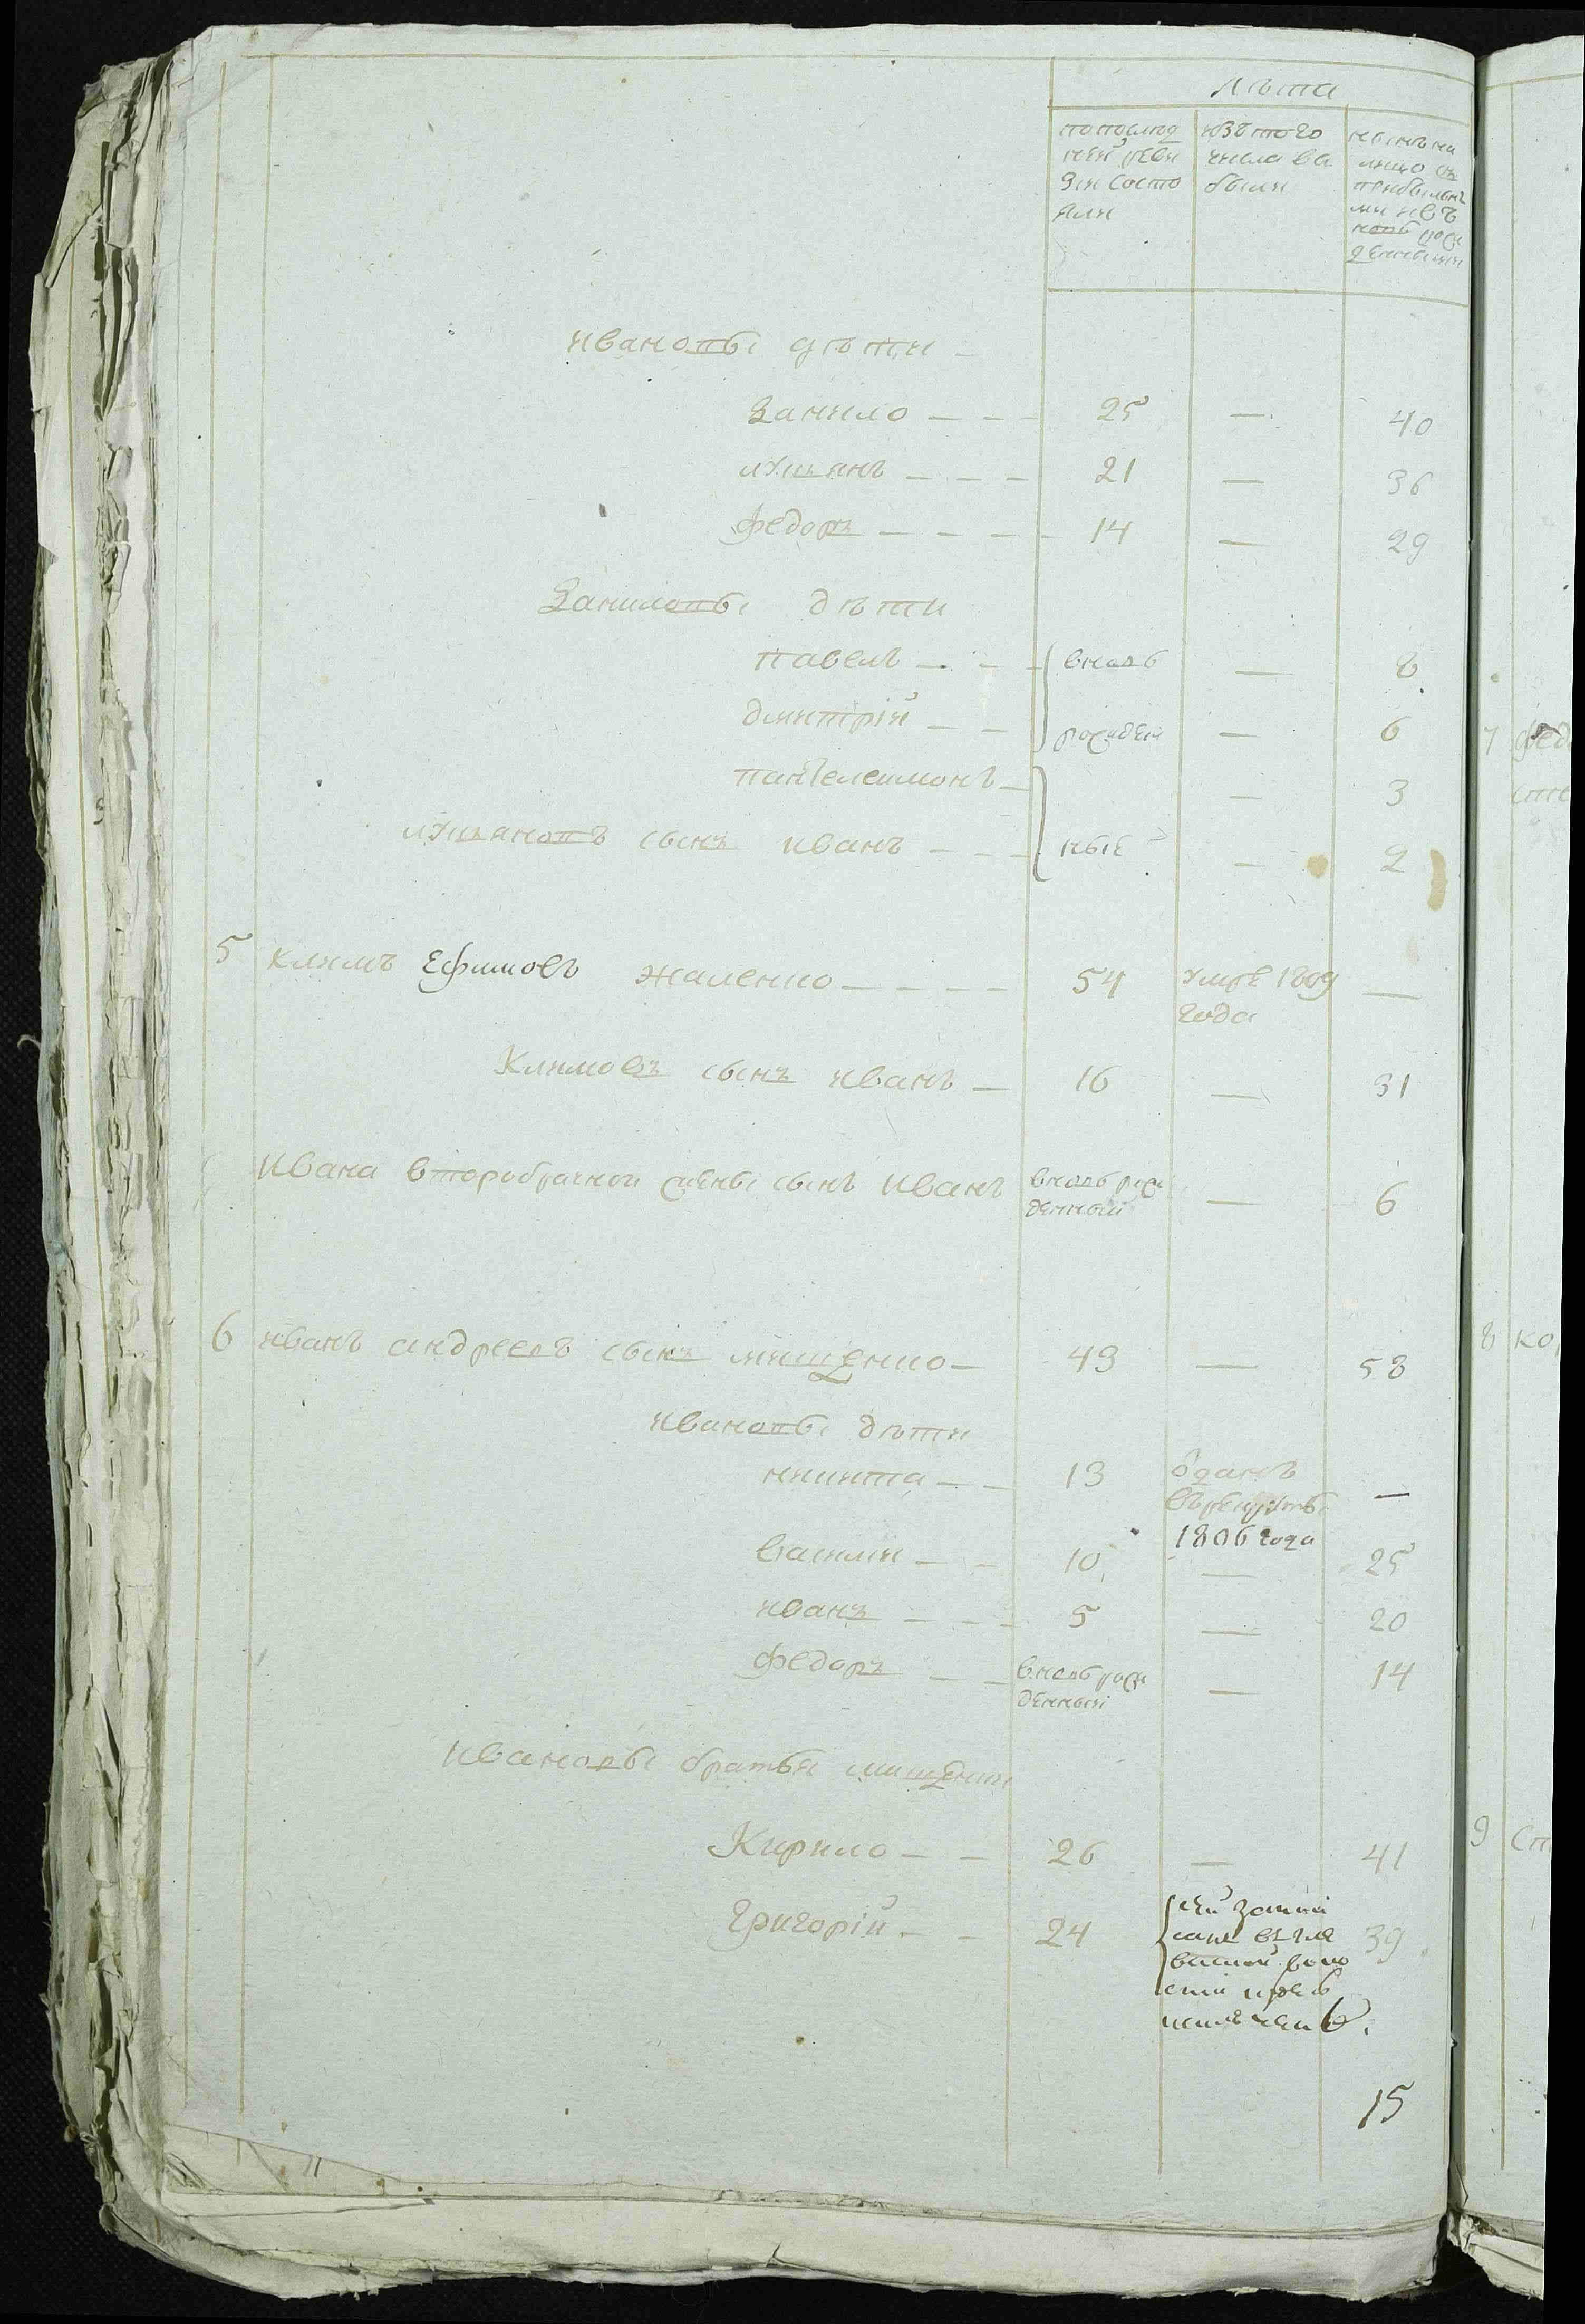 Лѣта
по послед
ней реви
зіи состо
яли
изъ того
числа вы
были
нынѣ на
лицо съ
прибылы
ми и въ
новь рож
денными
Ивановы дѣти
Данило — — — 25 — 40
Лукьянъ — — — 21 — 36
Федоръ — — — — 14 — 29
Даниловы дѣти
Павелъ — — вновь — 8
Дмитрій — — рожден — 6
Пантелеимонъ — — 3
Лукьяновъ сынъ Иванъ — — — ные — 2
5 Климъ Ефимовъ Жаленко — — — — 54 умре 1809 —
года
Климовъ сынъ Иванъ — 16 — 31
Ивана второбрачной жены сынъ Иванъ вновь рож — 6
денный
6 Иванъ Андреевъ сынъ Мищенко — 43 — 58
Ивановы дѣти
Никита — — 13 отданъ —
въ рекруты
1806 года
Василий — — 10 — 25
Иванъ — — — 5 — 20
Федоръ — — вновь рож — 14
денный
Ивановы братья Мищенки
Кирило — — 26 — 41
Григорій — — 24 сей запи 39
15
7 Фед
8 Ко
9 Сп